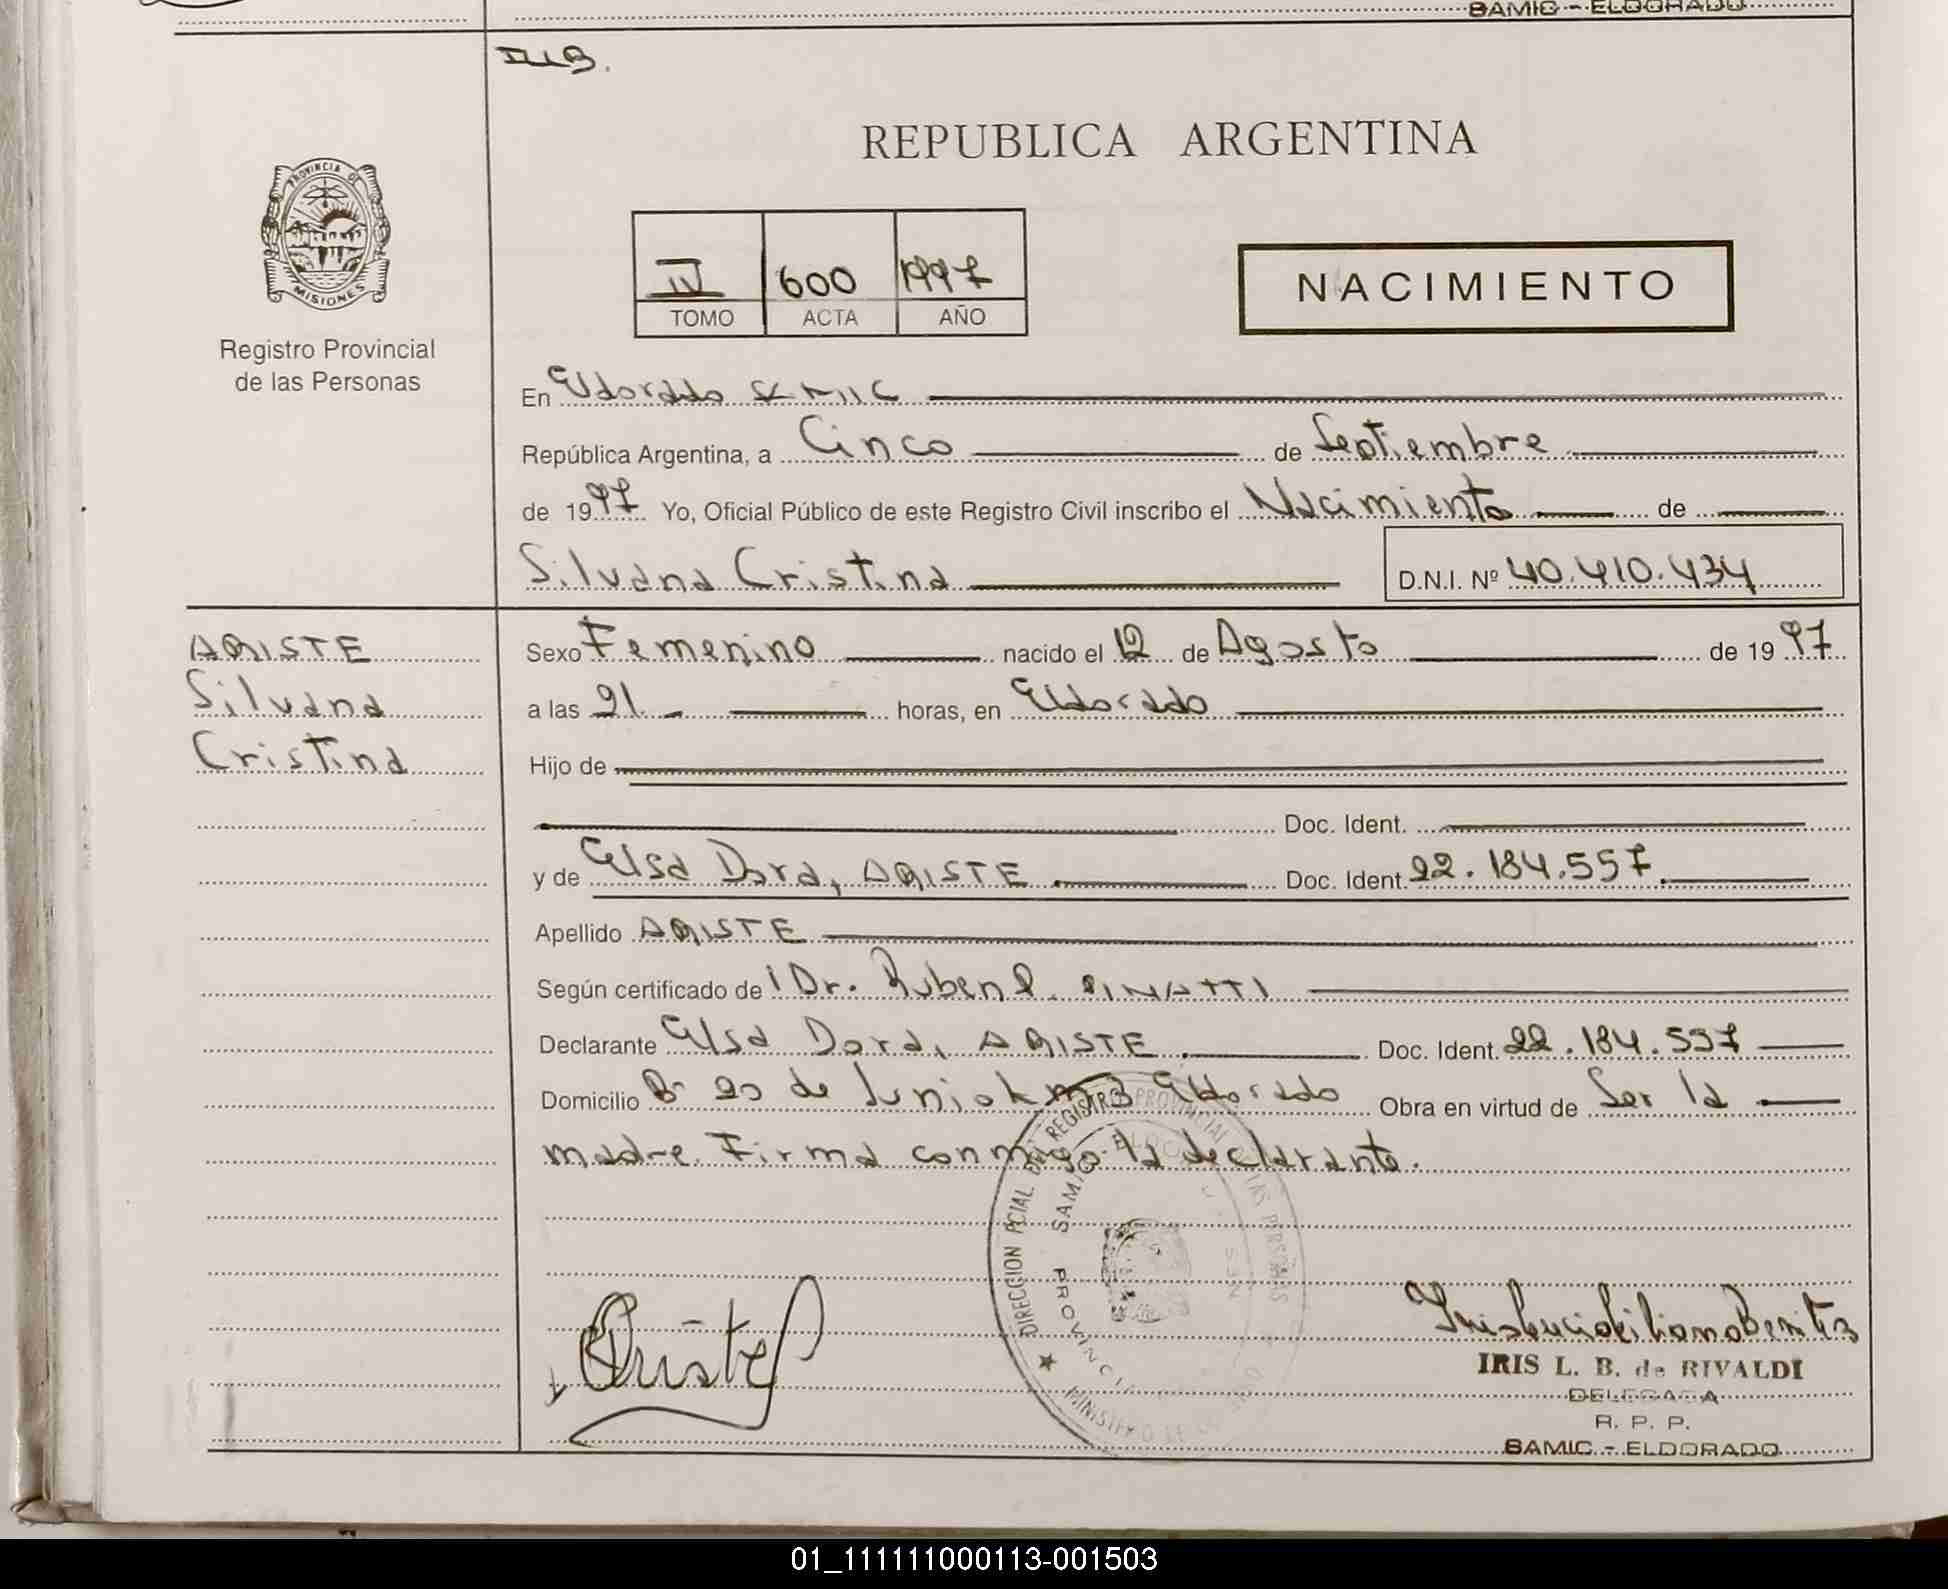 SAMIC - ELDORADO
REPUBLICA ARGENTINA
PROVINCIA DE
MISIONES
Registro Provincial
de las Personas
IV 600 1997
TOMO ACTA AÑO
NACIMIENTO
En Eldorado SAMIC
República Argentina, a Cinco de Septiembre
de 1997 Yo, Oficial Público de este Registro Civil inscribo el Nacimiento de
Silvana Cristina D.N.I. Nº 40.410.434
ARISTE
Silvana
Cristina
Sexo Femenino nacido el 12 de Agosto de 1997
a las 21.- horas, en Eldorado
Hijo de
Doc. Ident.
y de Elsa Dora, ARISTE Doc. Ident. 22.184.557.
Apellido ARISTE
Según certificado de Dr. Ruben
Declarante Elsa Dora, ARISTE. Doc. Ident. 22.184.557
Domicilio Bº 20 de Junio km 3 Eldorado Obra en virtud de Ser la
madre. Firma conmigo la declarante.
DIRECCION PCIAL DEL REGISTRO PROVINCIAL DE LAS PERSONAS
SAMIC
PROVINCIA
MINISTERIO DE GOBIERNO
Ariste
IRIS L. B. de RIVALDI
DELEGADA
R. P. P.
SAMIC.-ELDORADO
01_111111000113-001503